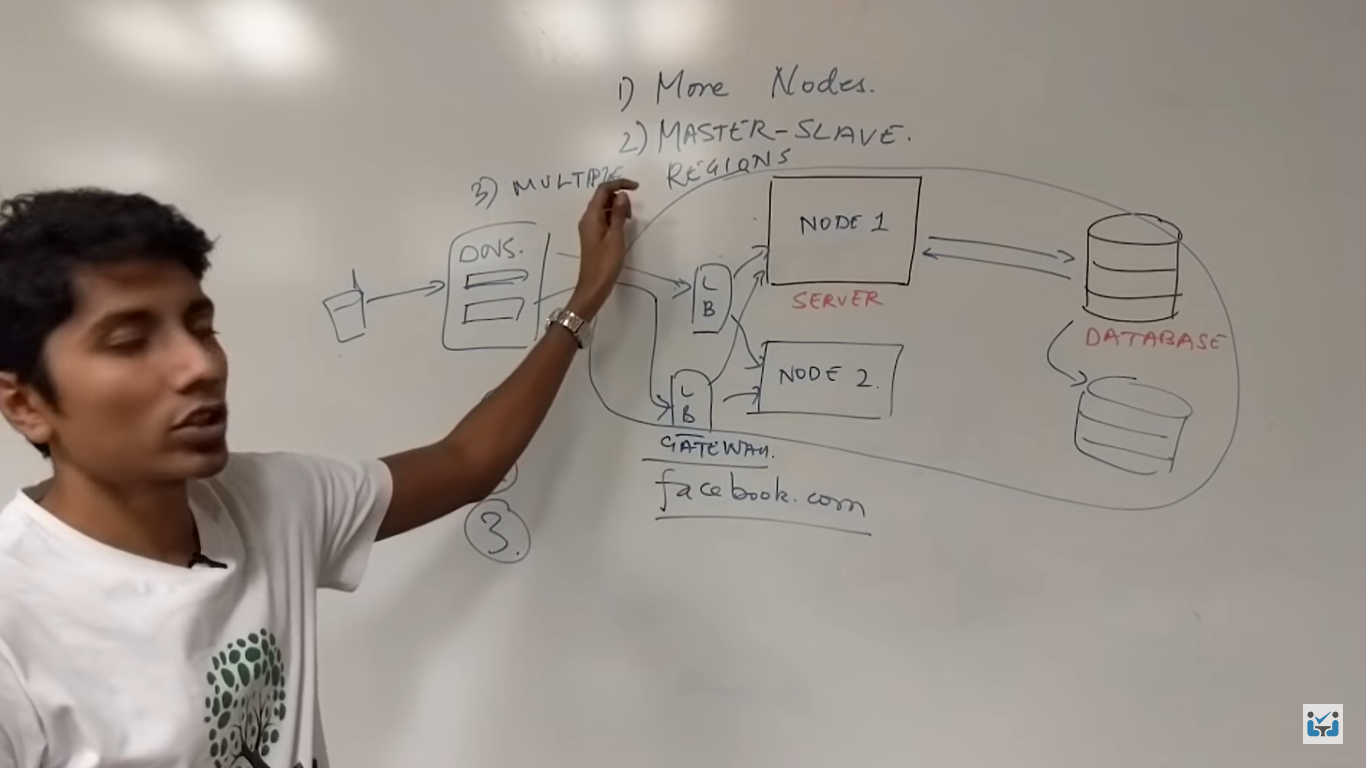 1) More Nodes.
2) MASTER-SLAVE.
3) MULTIPLE REGIONS
DNS.
L B
NODE 1
SERVER
DATABASE
NODE 2.
L B
GATEWAY.
facebook.com
3.